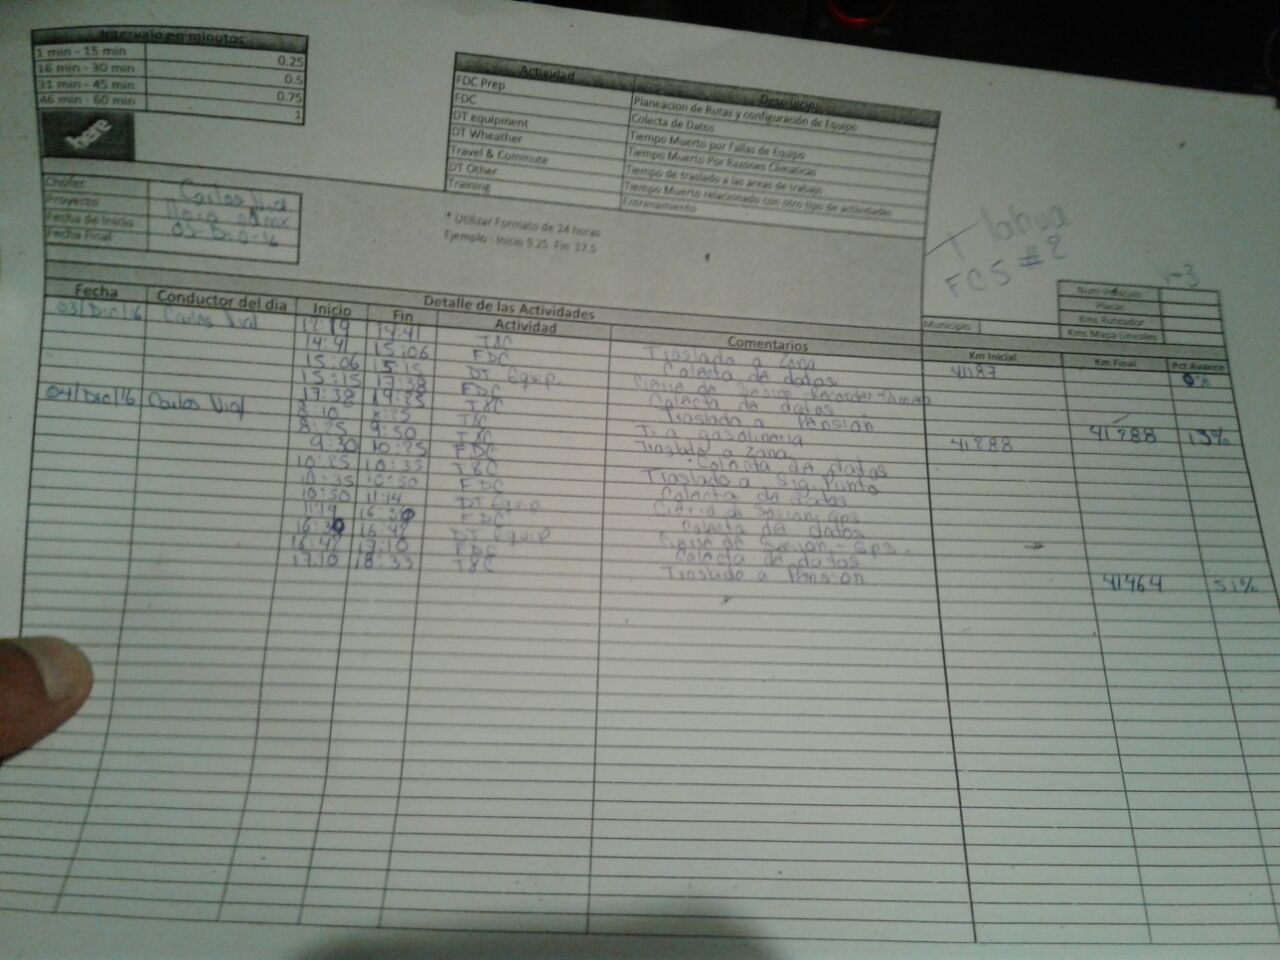 Intervalo en minutos
1 min - 15 min 0.25
16 min - 30 min 0.5
31 min - 45 min 0.75
46 min - 60 min 1
here
Actividad Descripcion
FDC Prep Planeacion de Rutas y configuración de Equipo
FDC Colecta de Datos
DT equipment Tiempo Muerto por Fallas de Equipo
DT Wheather Tiempo Muerto Por Razones Climaticas
Travel & Commute Tiempo de traslado a las areas de trabajo
DT Other Tiempo Muerto relacionado con otro tipo de actividades
Training Entrenamiento
Chofer Carlos
Proyecto
Fecha de Inicio 03-Dic-16
Fecha Final
* Utilizar Formato de 24 horas
Ejemplo : Inicio 9.25 Fin 17.5
FCS #2
Num Vehiculo V-3
Placas
Kms Ruteador
Kms Mapa Lineales
Municipio
Detalle de las Actividades
Fecha Conductor del dia Inicio Fin Actividad Comentarios Km Inicial Km Final Pct Avance
03/Dic/16 Carlos Vial 12:19 14:41 T&C Traslado a zona 41187 0%
14:41 15:06 FDC Colecta de datos
15:06 15:15 DT Equip.
15:15 17:38 FDC Colecta de datos
17:38 19:25 T&C Traslado a Pensión 41288 13%
04/Dic/16 Carlos Vial 8:10 8:25 T&C a gasolineria 41288
8:25 9:30 T&C Traslado a zona
9:30 10:25 FDC Colecta de datos
10:25 10:35 T&C Traslado a Sig. Punto
10:35 10:50 FDC Colecta de datos
10:50 11:14 DT Equip
11:14 16:30 FDC Colecta de datos
16:30 16:47 DT Equip
16:47 17:10 FDC Colecta de datos
17:10 18:35 T&C Traslado a Pensión 41464 51%